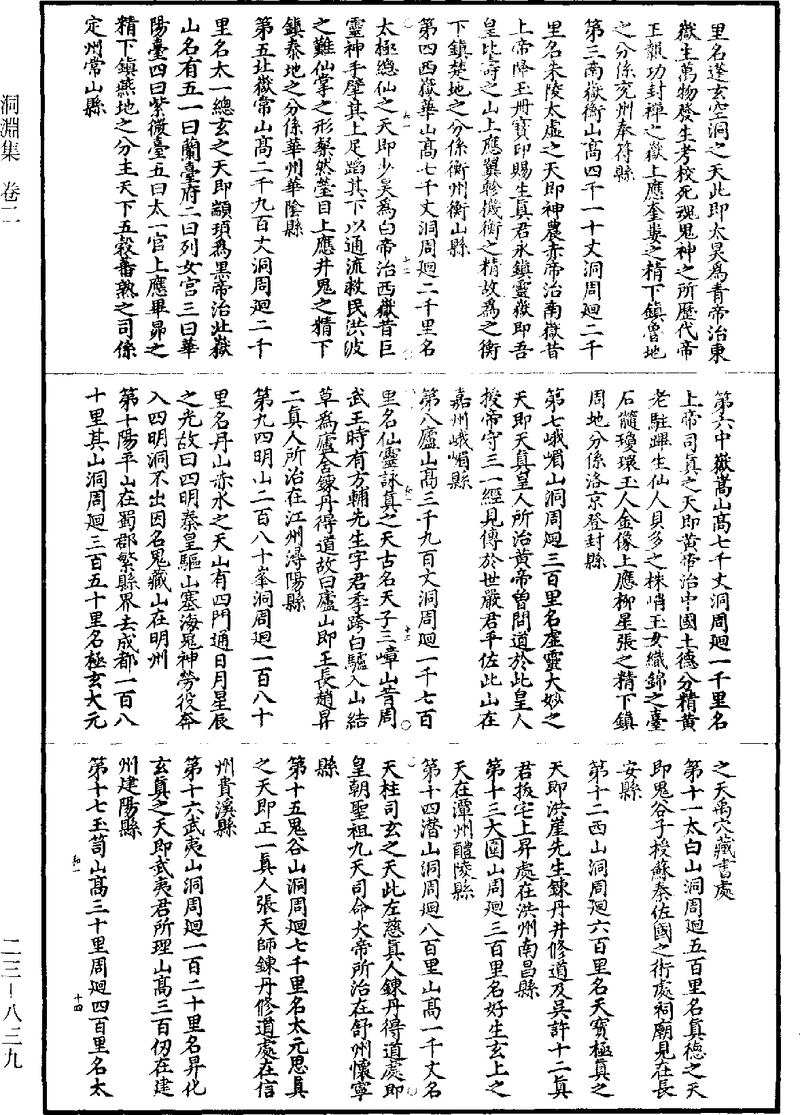 里名蓬玄空洞之天此即太昊爲青帝治東
嶽生萬物發生考校死魂鬼神之所歷代帝
王報功封禪之嶽上應奎婁之精下鎮魯地
之分係兖州奉符縣
第三南嶽衡山高四千一十丈洞周廻二千
里名朱陵太虛之天即神農赤帝治南嶽昔
上帝降玉册寶印賜生真君永鎮靈嶽即吾
皇比壽之山上應翼軫機衡之精故爲之衡
下鎮楚地之分係衡州衡山縣
第四西嶽華山高七千丈洞周廻二千里名
太極總仙之天即少昊爲白帝治西嶽昔巨
靈神手擘其上足蹈其下以通流救民洪波
之難仙掌之形粲然瑩目上應井鬼之精下
鎮秦地之分係華州華陰縣
第五北嶽常山高二千九百丈洞周廻二千
里名太一總玄之天即顓頊爲黑帝治北嶽
山名有五一曰蘭臺府二曰列女宫三曰華
陽臺四曰紫微臺五曰太一官上應畢昴之
精下鎮燕地之分主天下五穀善熟之司係
定州常山縣
第六中嶽嵩山高七千丈洞周廻一千里名
上帝司真之天即黄帝治中國土德分精黄
老駐蹕生仙人貝多之株峭玉女織錦之臺
石髓瓊瓌玉人金像上應柳星張之精下鎮
周地分係洛京登封縣
第七峨嵋山洞周廻三百里名虛靈大妙之
天即天真皇人所治黄帝曽問道於此皇人
授帝守三一經見傳於世嚴君平佐此山在
嘉州峨嵋縣
第八廬山高三千九百丈洞周廻一千七百
里名仙靈詠真之天古名天子三嶂山昔周
武王時有方輔先生字君季跨白驢入山結
草爲廬舍鍊丹得道故曰廬山即王長趙昇
二真人所治在江州潯陽縣
第九四明山二百八十峯洞周廻一百八十
里名丹山赤水之天山有四門通日月星辰
之光故曰四明秦皇驅山塞海鬼神勞役奔
入四明洞不出因名鬼藏山在明州
第十陽平山在蜀郡繁縣界去成都一百八
十里其山洞周廻三百五十里名極玄大元
之天禹穴藏書處
第十一太白山洞周廻五百里名真德之天
即鬼谷子授蘇秦佐國之術處祠廟見在長
安縣
第十二西山洞周廻六百里名天寳極真之
天即洪崖先生鍊丹井修道及吳許十二真
君拔宅上昇處在洪州南昌縣
第十三大圍山周廻三百里名好生玄上之
天在潭州醴陵縣
第十四潜山洞周廻八百里山高一千丈名
天柱司玄之天此左慈真人鍊丹得道處即
皇朝聖祖九天司命大帝所治在舒州懷寧
縣
第十五鬼谷山洞周廻七千里名太元思真
之天即正一真人張天師鍊丹修道處在信
州貴溪縣
第十六武夷山洞周廻一百二十里名昇化
玄真之天即武夷君所理山高三百仞在建
州建陽縣
第十七玉笥山高三十里周廻四百里名太
洞淵集　卷二
二三—八三九